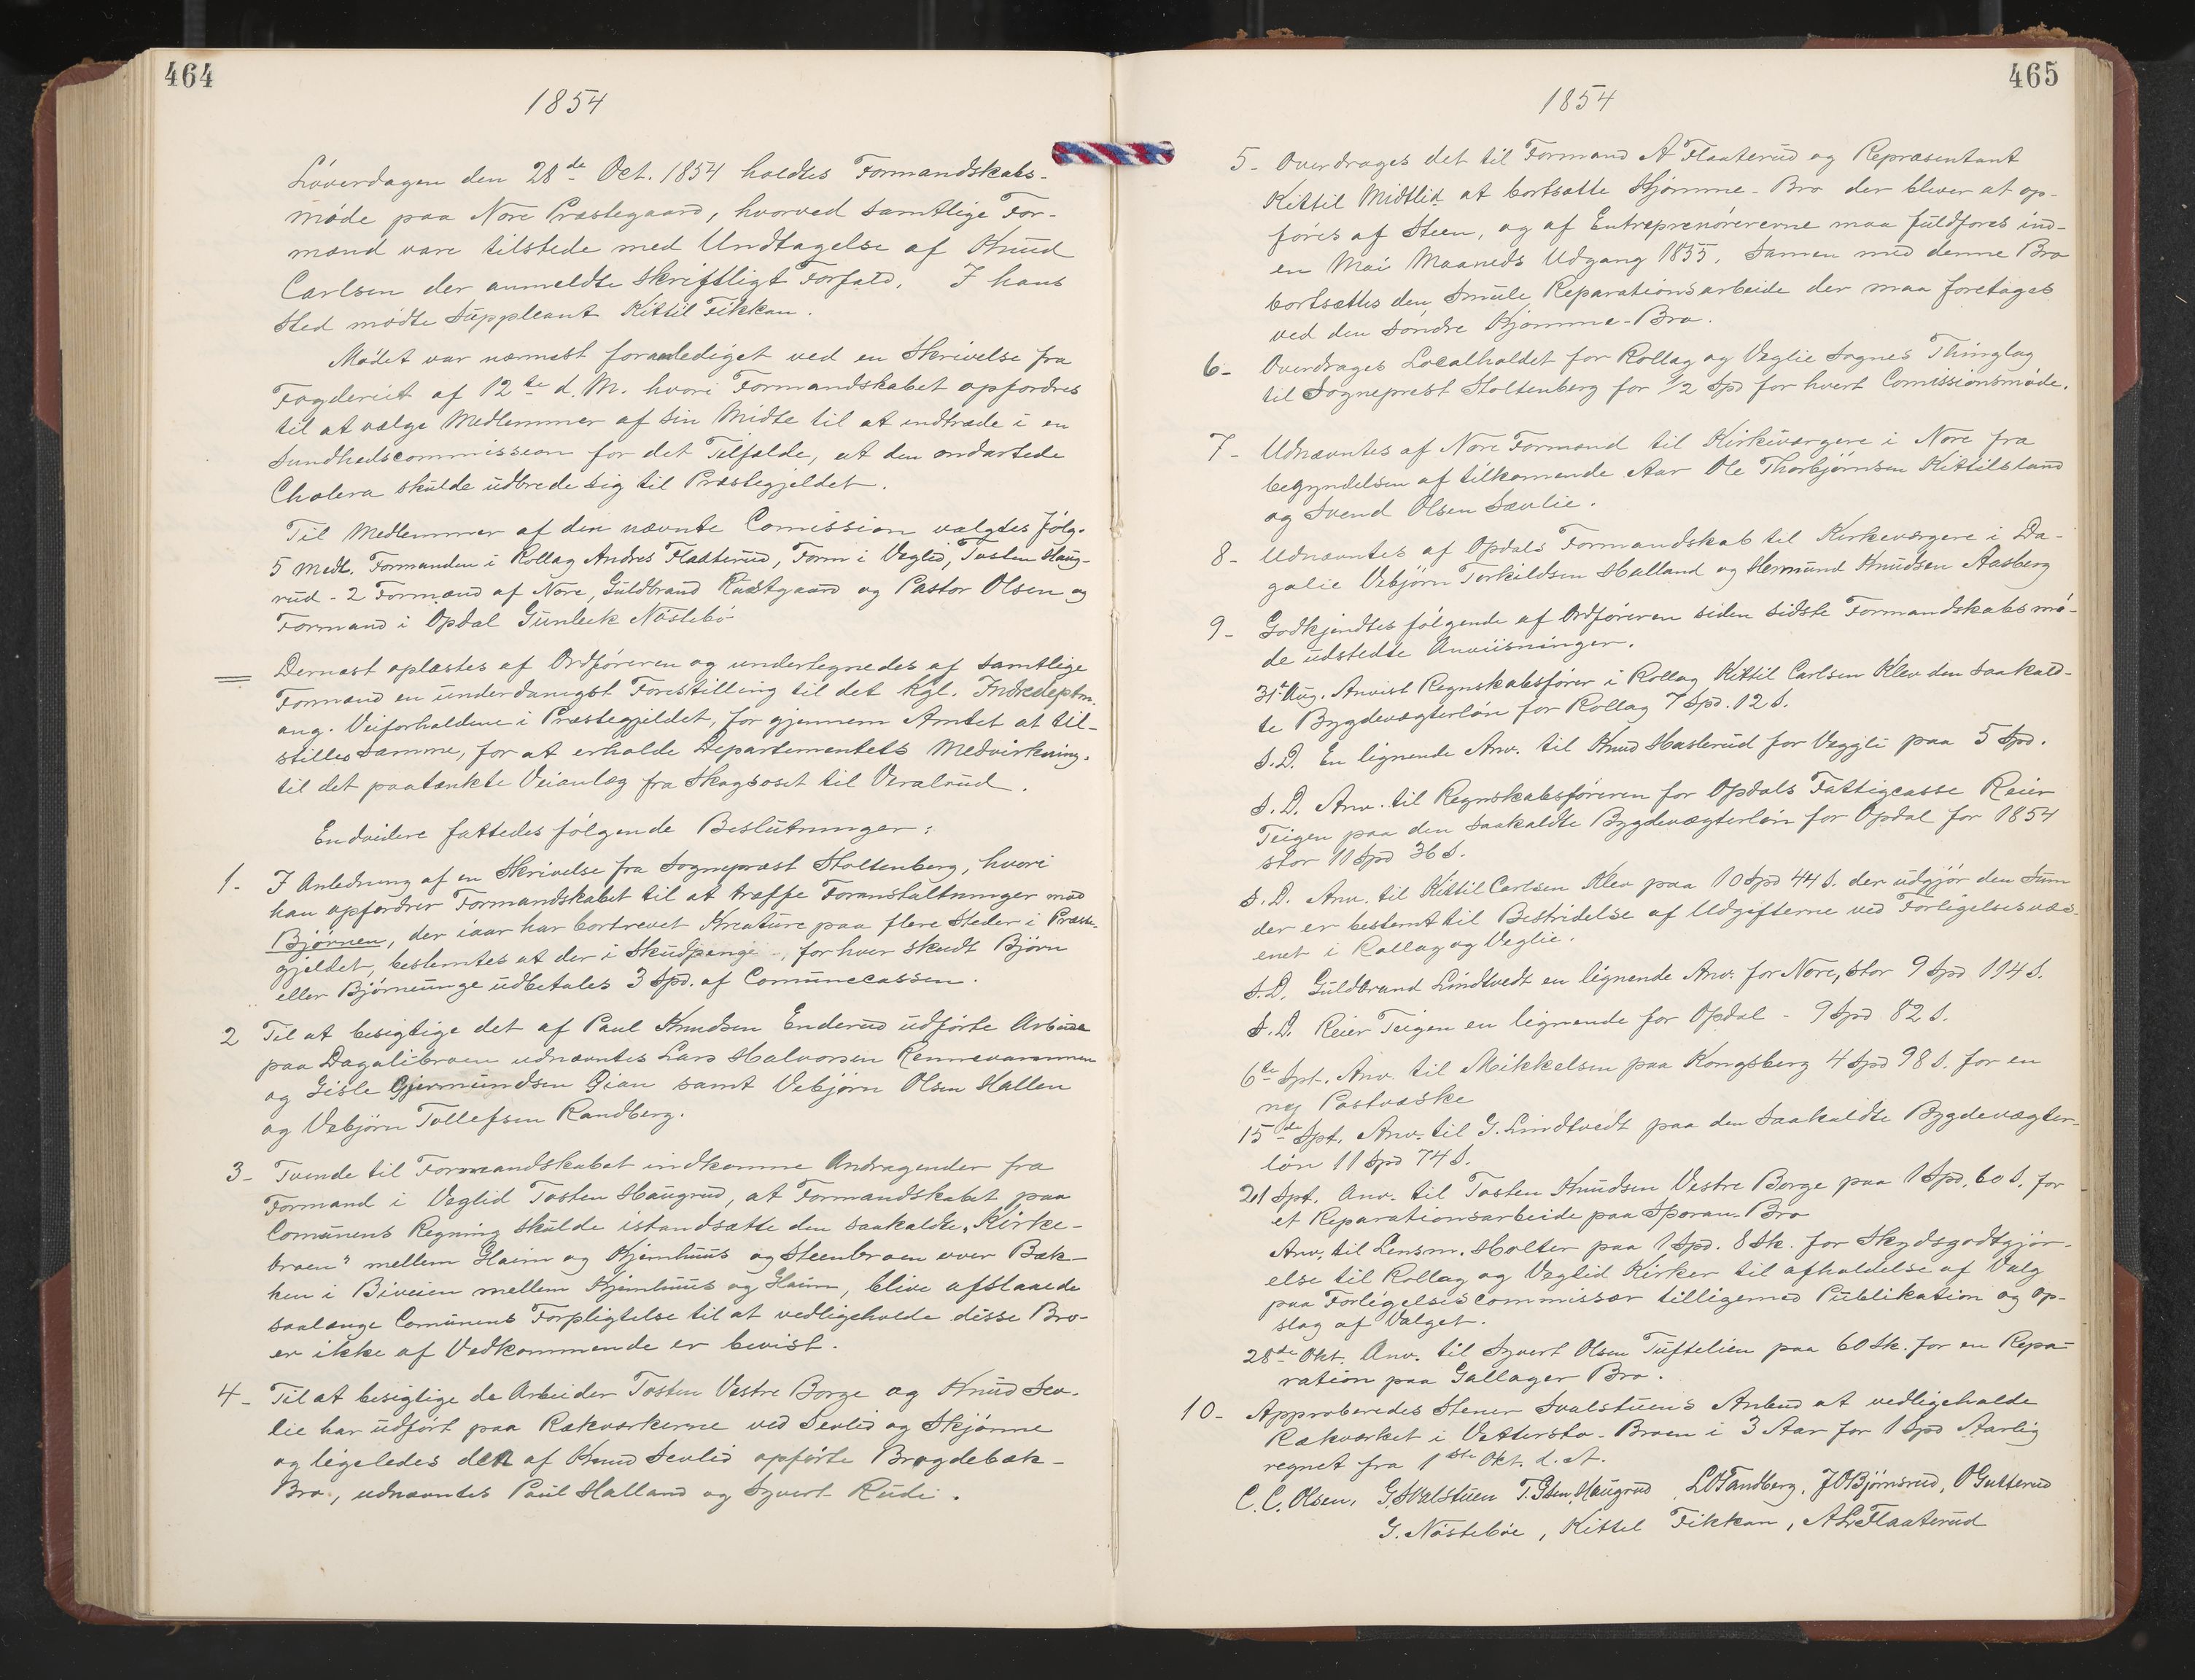 464
1854
Löverdagen den 28de Oct. 1854 holdtes Formandskabs-
möde paa Nore Præstegaard, hvorved samtlige For-
mænd vare tilstede med Undtagelse af Knud
Carlsen der anmeldte skriftligt Forfald. I hans
Sted mödte Suppleant Kittil Fikkan.
Mödet var nærmest foranlediget ved en Skrivelse fra
Fogderiet af 12te d. M. hvori Formandskabet opfordres
til at vælge Medlemmer af sin Midte til at indtræde i en
Sundhedscommission for det Tilfælde, at den ondartede
Cholera skulde udbrede sig til Præstegjeldet.
Til Medlemmer af den nævnte Comission valgtes fölg.
5 Medl. Formanden i Rollag Andres Flaaterud, Form i Veglid, Tosten Haug-
rud - 2 Formænd af Nore, Guldbrand Rustgaard og Pastor Olsen og
Formand i Opdal Gunleik Nöstebö
Dernæst oplæstes af Ordföreren og undertegnedes af samtlige
Formænd en underdanigst Forestilling til det kgl. Indredeptm.
ang. Veiforholdene i Præstegjeldet, for gjennem Amtet at til-
stilles samme, for at erholde Departementets Medvirkning
til det paatænkte Veianlæg fra Skagsoset til Veralrud.
Endvidere fattedes fölgende Beslutninger:
1- I Anledning af en Skrivelse fra Sogneprest Stoltenberg, hvori
han opfordrer Formandskabet til at træffe Foranstaltninger mod
Bjørnen, der iaar har bortrevet Kreature paa flere Steder i Præste-
gjeldet, bestemtes at der i Skudpenge, for hver skudt Björn
eller Björneunge udbetales 3 Spd. af Comunecassen.
2 Til at besigtige det af Paul Knudsen Enderud udförte Arbeide
paa Dagalibroen udnævntes Lars Halvorsen
og Gisle Gjermundsen samt Vebjörn Olsen Hallen
og Vebjörn Tollefsen Randberg.
3- Tvende til Formandskabet indkomne Andragender fra
Formand i Veglid Tosten Haugrud, at Formandskabet paa
Comunens Regning skulde istandsætte den saakaldte „Kirke-
broen" mellem Haim og Kjemhuus og Steenbroen over Bæk-
ken i Biveien mellem Kjemhuus og Haim, blive afslaaede
saalænge Comunens Forpligtelse til at vedligeholde disse Bro-
er ikke af Vedkommende er bevist.
4- Til at besigtige de Arbeider Tosten Vestre Borge og Knud Sev-
lie har udfört paa Rækværkerne ved Sevlid og Skjönne
og ligeledes den af Knud Sevlid opförte Brogdebæk-
Bro, udnævntes Paul Halland og Syvert Rudi.
465
1854
5- Overdrages det til Formand A Flaaterud og Repræsentant
Kittil Midtlid at bortsætte Hjömme-Bro der bliver at op-
föres af Steen, og af Entreprenörerne maa fuldföres ind-
en Mai Maaneds Udgang 1855. Samen med denne Bro
bortsættes den Smule Reparationsarbeide der maa foretages
ved den söndre Kjomme-Bro.
6- Overdrages Localholdet for Rollag og Veglie Sognes Thinglag
til Sogneprest Stoltenberg for 1/2 Spd for hvert Comissionsmöde.
7- Udnævntes af Nore Formænd til Kirkeværgere i Nore fra
begyndelsen af tilkomende Aar Ole Thorbjörnsen Kittilsland
og Svend Olsen Sævlie.
8- Udnævntes af Opdals Formandskab til Kirkeværgere i Da-
galie Vebjörn Torkildsen Halland og Hermund Knudsen Aasberg
9- Godkjendtes fölgende af Ordföreren siden sidste Formandskabsmö-
de udstedte Anviisninger.
31te Aug. Anvist Regnskabsförer i Rollag Kittil Carlsen Klev den saakald-
te Bygdevægterlön for Rollag 7 Spd. 12 S.
S.D. En lignende Anv. til Knud Haslerud for Veggli paa 5 Spd.
S.D. Anv. til Regnskabsföreren for Opdals Fattigcasse Reier
Teigen paa den saakaldte Bygdevægterlön for Opdal for 1854
stor 11 Spd 36 S.
S.D. Anv. til Kittil Carlsen Klev paa 10 Spd 44 S. der udgjör den Sum
der er bestemt til Bestridelse af Udgifterne ved Forligelsesvæs-
enet i Rollag og Veglie.
S.D. Guldbrand Lindtvedt en lignende Anv. for Nore, stor 9 Spd 114 S.
S.D. Reier Teigen en lignende for Opdal - 9 Spd 82 S.
6te Spt. Anv. til Mikkelsen paa Kongsberg 4 Spd 98 S. for en
ny Postvæske
15de Spt. Anv. til G. Lindtvedt paa den saakaldte Bygdevægter-
lön 11 Spd 74 S.
21 Spt. Anv. til Tosten Knudsen Vestre Borge paa 1 Spd. 60 S. for
et Reparationsarbeide paa Sporan-Bro
Anv. til Lensm. Holter paa 1 Spd. 8 Sk. for Skydsgodtgjör-
else til Rollag og Veglid Kirker til afholdelse af Valg
paa Forligelsescommissær tilligemed Publikation og op-
slag af Valget.
28de Okt. Anv. til Syvert Olsen Tuftelien paa 60 Sk. for en Repa-
ration paa Gallager Bro.
10- Approberedes Stener Svalstuens Anbud at vedligeholde
Rækværket i Vettersto-Broen i 3 Aar for 1 Spd Aarlig
regnet fra 1ste Okt. d. A.
C. C. Olsen, G. Svalstuen T. Gsen Haugrud L O Tandberg, J O Björnsrud, O Gutterud
G. Nösteböe, Kittel Fikkan, A L Flaaterud